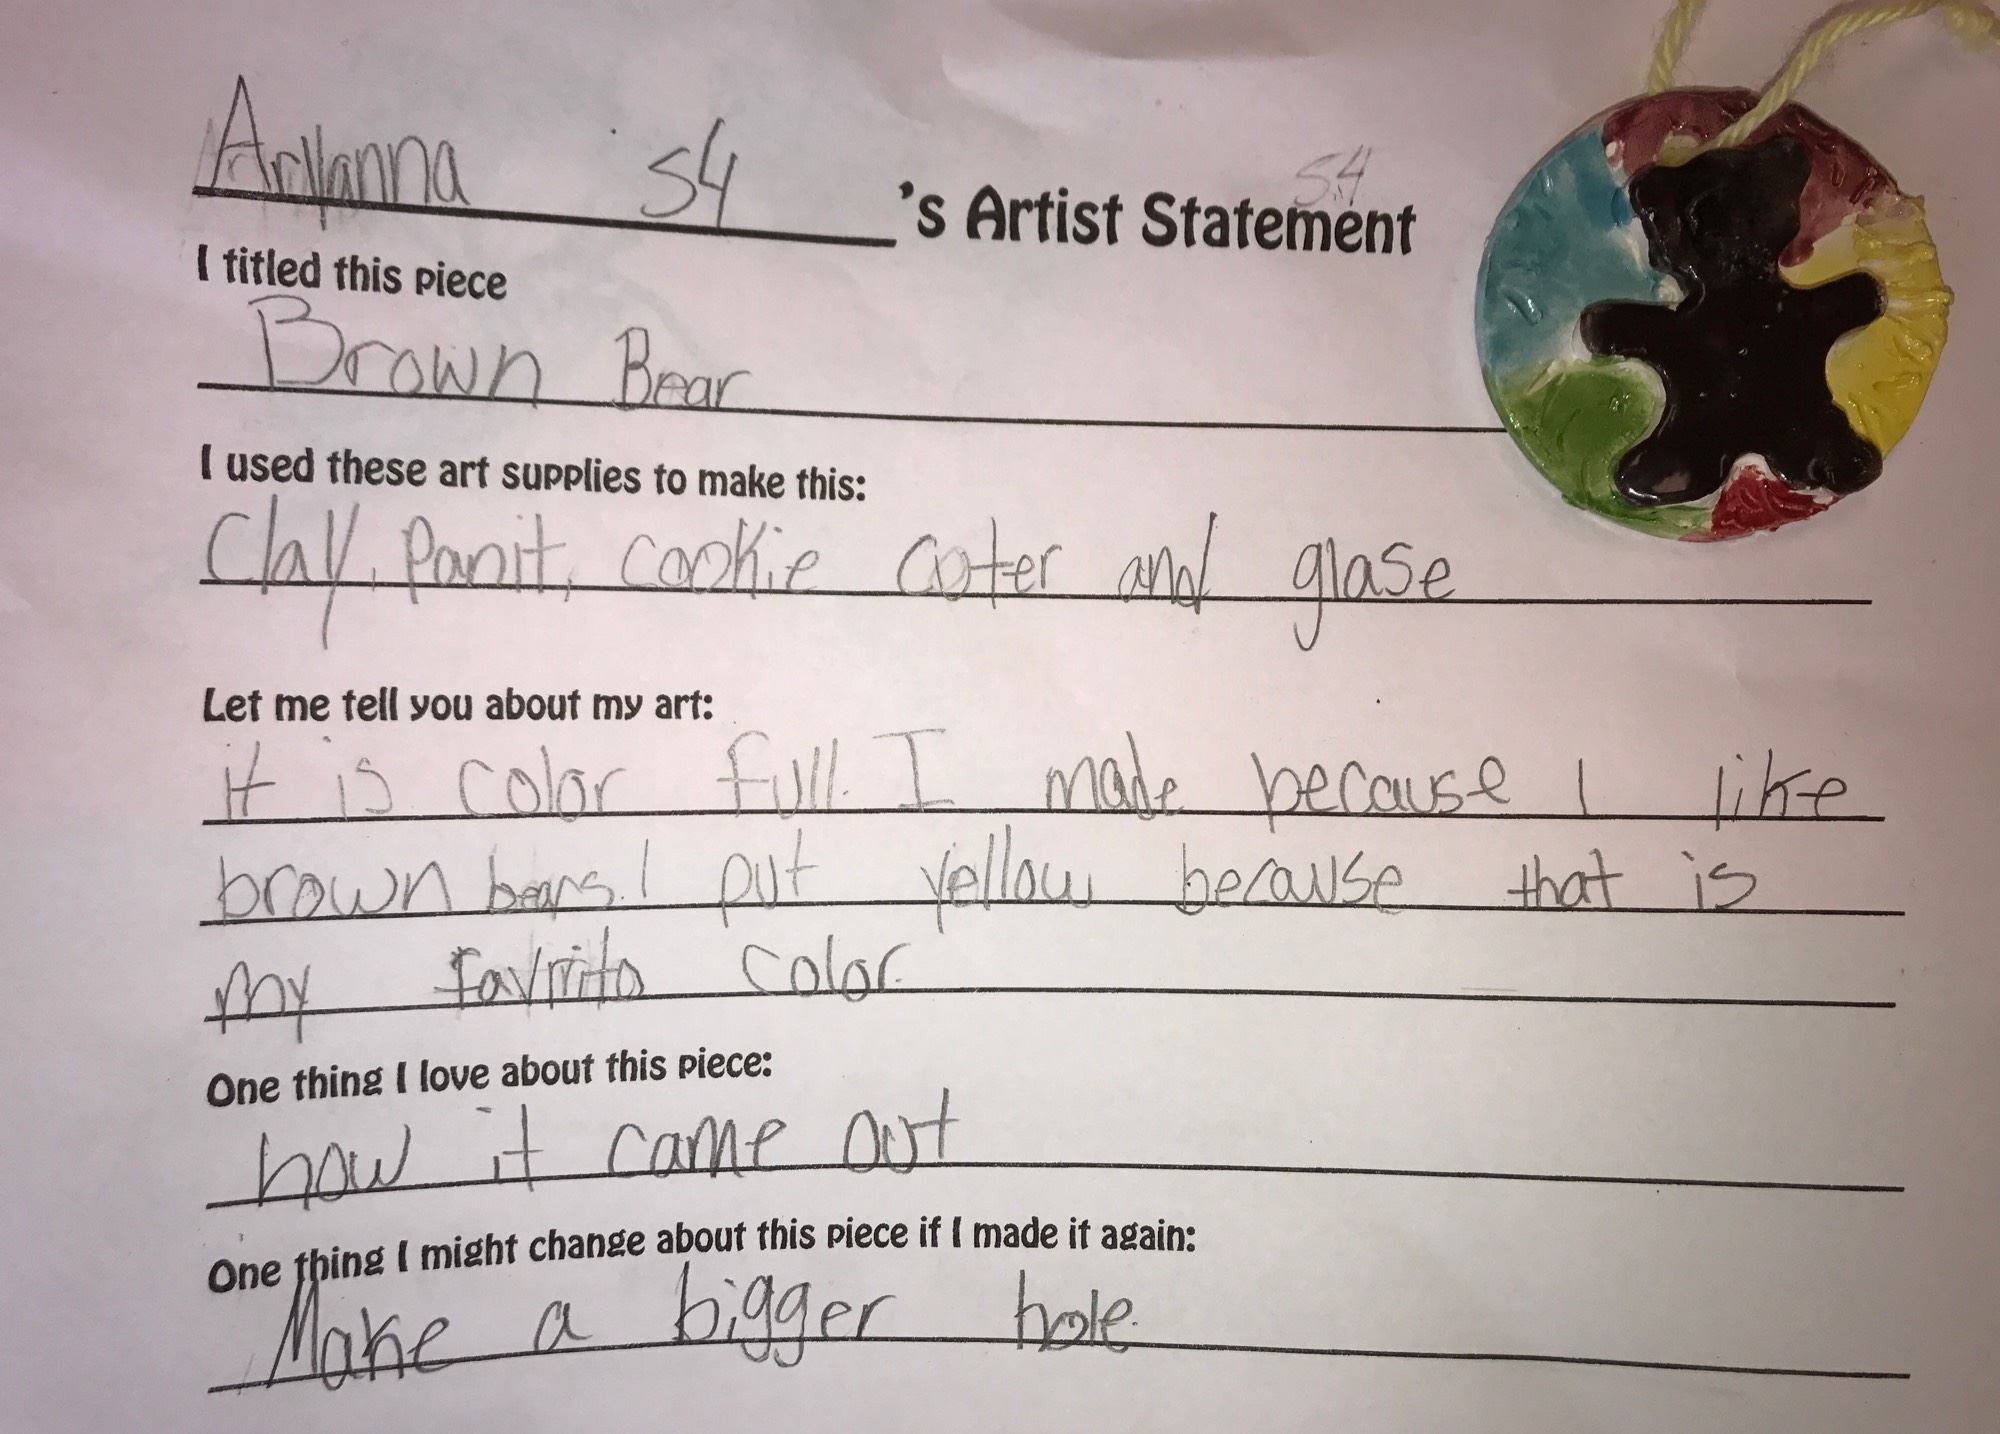 Aryanna S4 's Artist Statement S4
I titled this piece
Brown Bear
I used these art supplies to make this:
Clay, Panit, cookie coter and glase
Let me tell you about my art:
it is color full. I made because I like
brown bears. I put yellow because that is
my favrito color.
One thing I love about this piece:
how it came out
One thing I might change about this piece if I made it again:
Make a bigger hole.